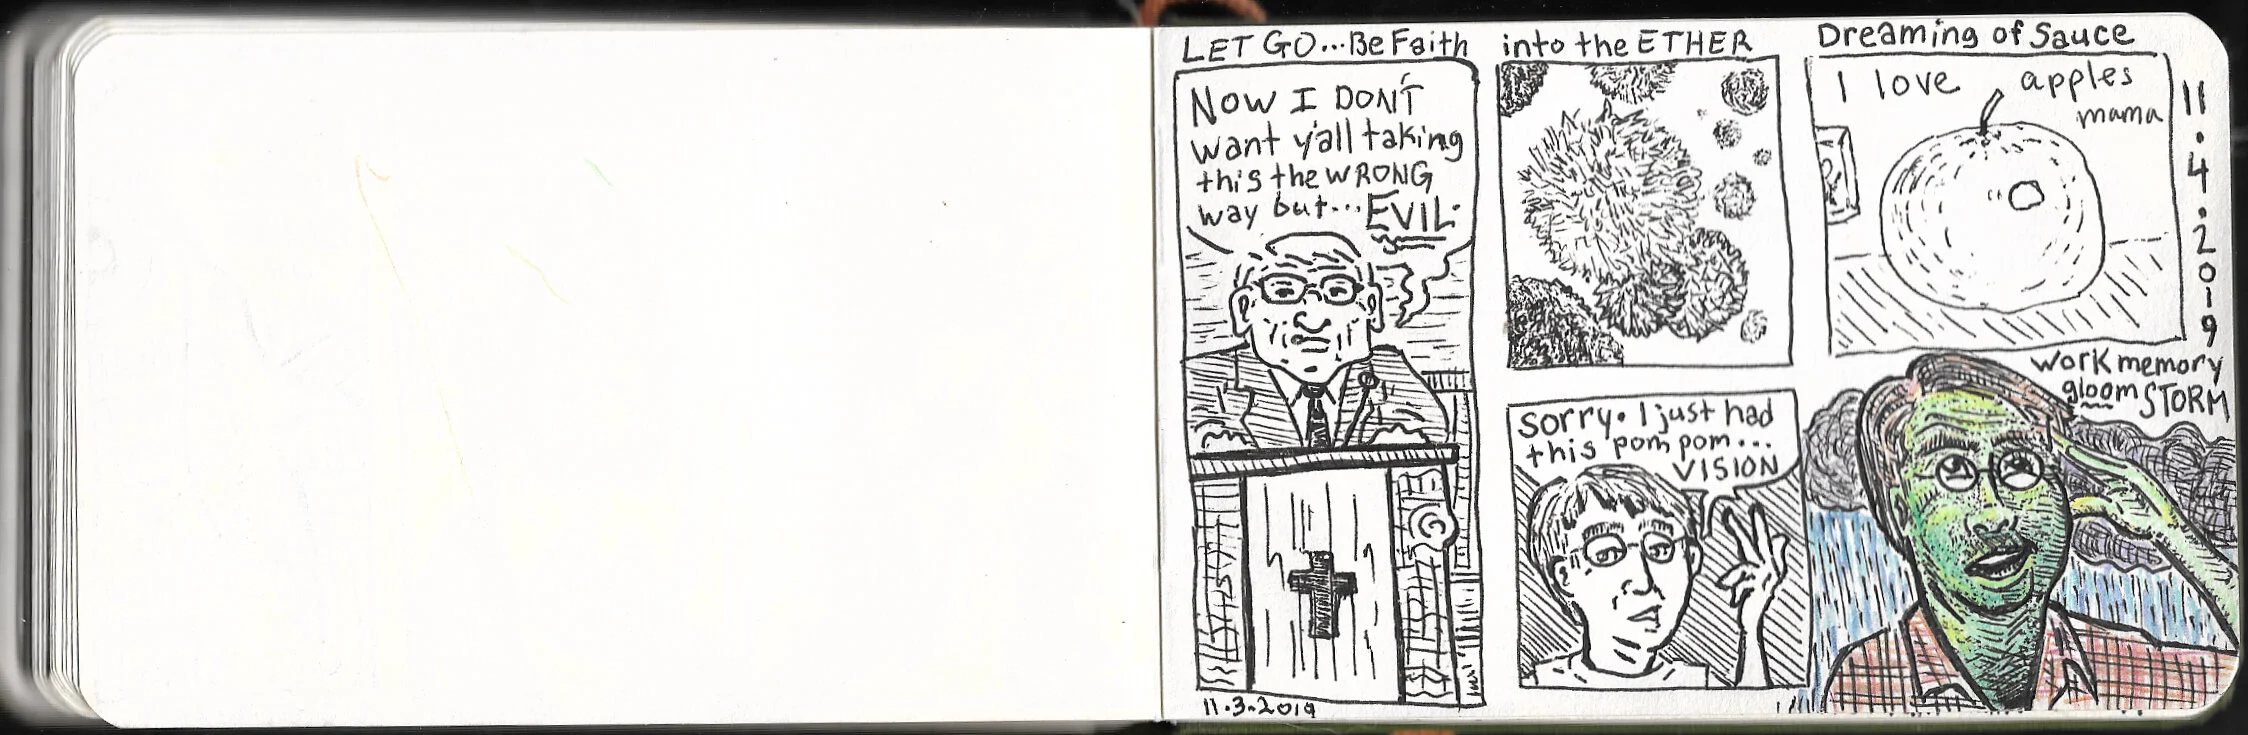 LET GO...Be Faith
Now I DON'T
want y'all taking
this the WRONG
way but... EVIL.
11.3.2019
into the ETHER
sorry. I just had
this pom pom...
VISION
Dreaming of Sauce
I love apples
mama
11.4.2019
work memory
gloom STORM